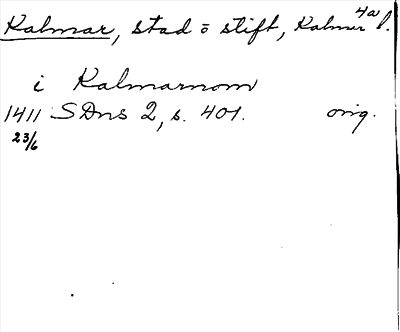 Kalmar, stad o stift, Kalmar l. 4a
i Kalmarnom
1411 SDns 2, s. 401. orig.
23/6